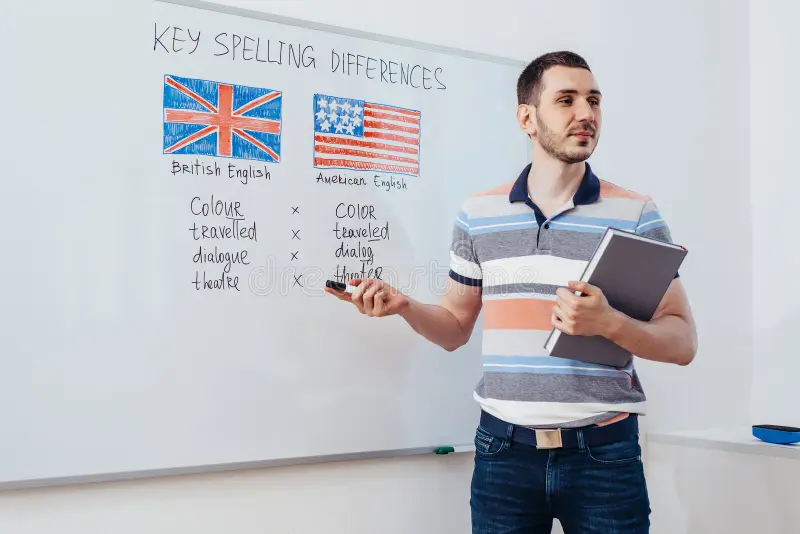 KEY SPELLING DIFFERENCES
British English American English
COLOUR x COLOR
travelled x traveled
dialogue x dialog
theatre x theater
dreamstime